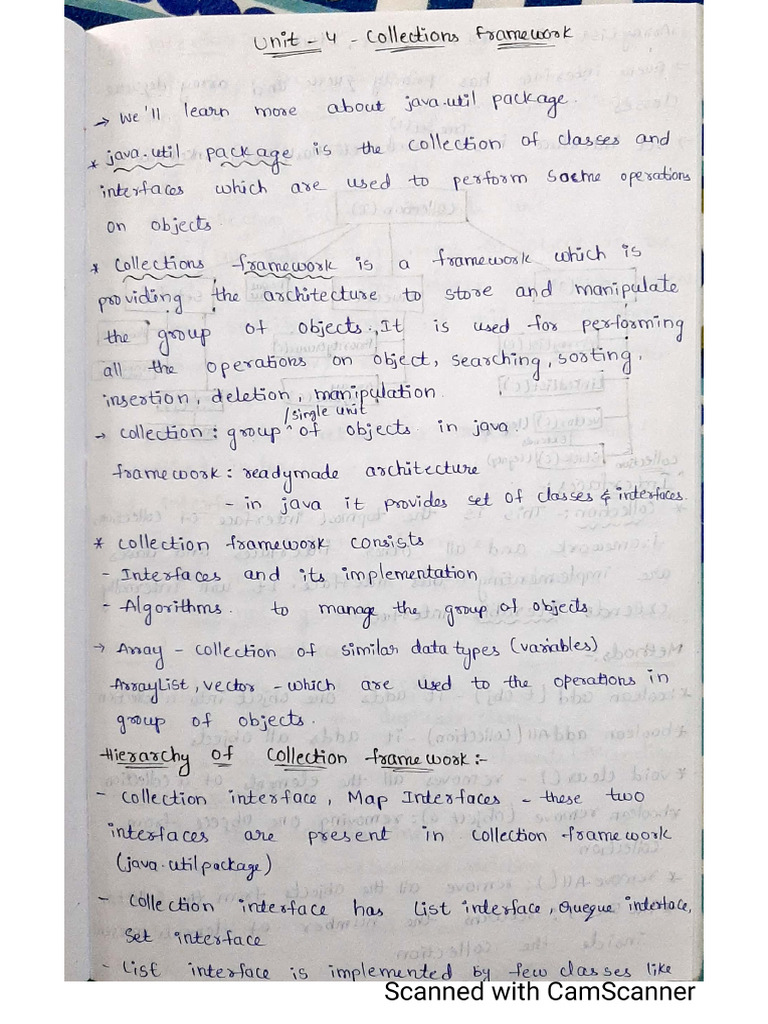 Unit - 4 - Collections Framework
→ we'll learn more about java.util package.
* java.util package is the collection of classes and
interfaces which are used to perform some operations
on objects.
* Collections framework is a framework which is
providing the architecture to store and manipulate
the group of objects., It is used for performing
all the operations on object, searching, sorting,
insertion, deletion, manipulation.
/single unit
→ collection : group ^ of objects in java.
framework : readymade architecture
- in java it provides set of classes & interfaces.
* Collection framework consists
- Interfaces and its implementation
- Algorithms. to manage the group of objects
→ Array - collection of similar data types (variables)
ArrayList, vector - which are used to the operations in
group of objects.
Hierarchy of Collection framework :-
- Collection interface, Map Interfaces - these two
interfaces are present in collection framework
(java.util package)
- Collection interface has List interface, Queque interface,
Set interface
- List interface is implemented by few classes like
Scanned with CamScanner